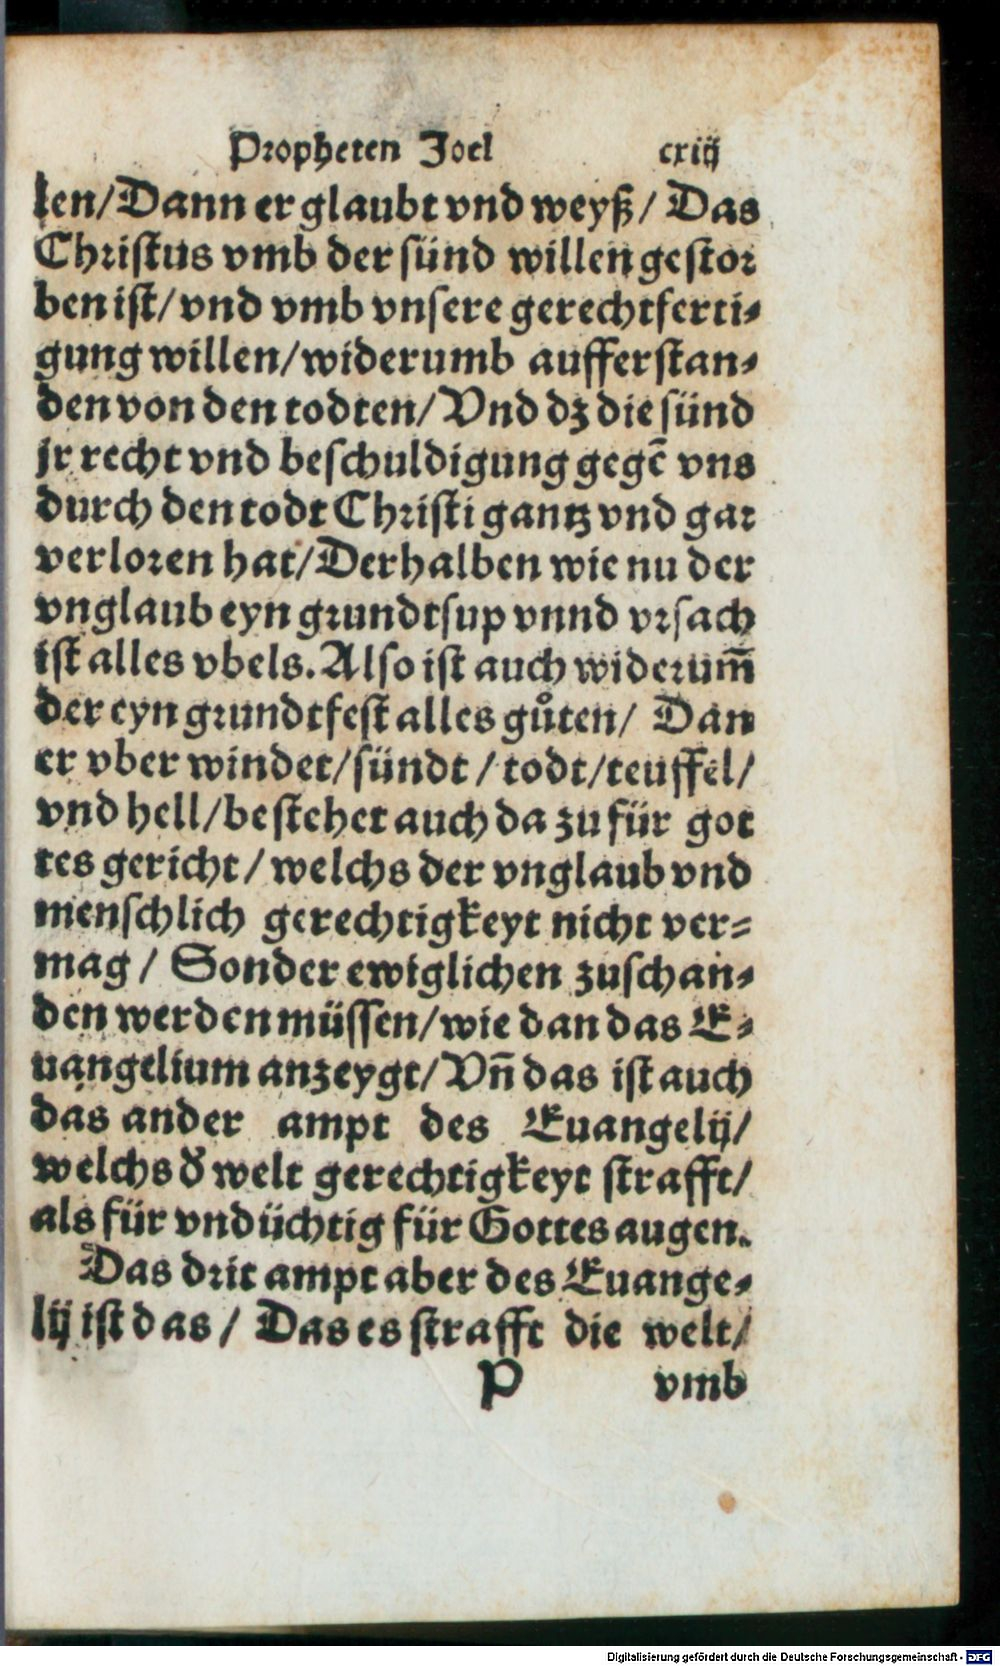 Propheten Joel cxiij
len/Dann er glaubt vnd weyß/ Das
Christus vmb der sünd willen gestor
ben ist/vnd vmb vnsere gerechtferti⸗
gung willen/widerumb aufferstan⸗
den von den todten/Vnd dz die sünd
jr recht vnd beschuldigung gegē vns
durch den todt Christi gantz vnd gar
verloren hat/Derhalben wie nu der
vnglaub eyn grundtsup vnnd vrsach
ist alles vbels. Also ist auch widerum̄
der eyn grundtfest alles gůten/ Dan
er vber windet/sündt/todt/teuffel/
vnd hell/bestehet auch da zu für got
tes gericht/welchs der vnglaub vnd
menschlich gerechtigkeyt nicht ver⸗
mag/ Sonder ewiglichen zuschan⸗
den werden müssen/wie dan das E⸗
uangelium anzeygt/Vn̄ das ist auch
das ander ampt des Euangelij/
welchs d̕ welt gerechtigkeyt strafft/
als für vndüchtig für Gottes augen.
Das drit ampt aber des Euange⸗
lij ist das/ Das es strafft die welt/
P vmb
Digitalisierung gefördert durch die Deutsche Forschungsgemeinschaft - DFG